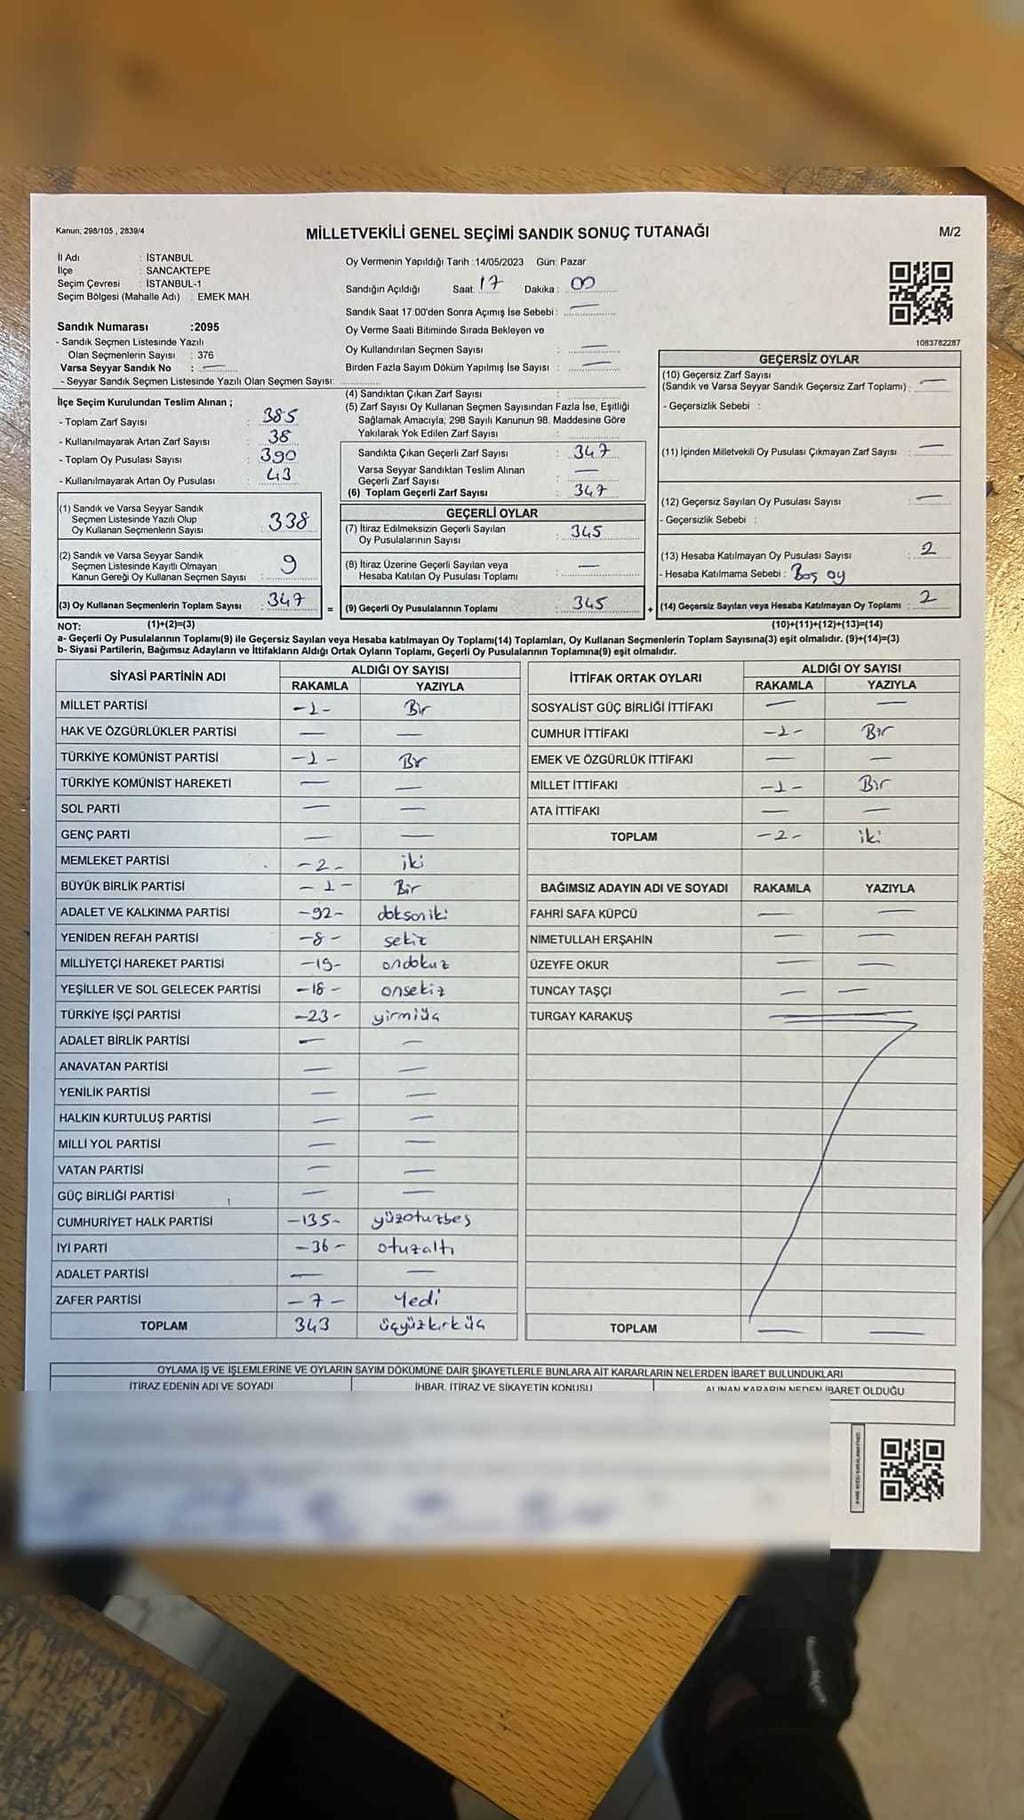 Kanun, 298/105 , 2839/4
MİLLETVEKİLİ GENEL SEÇİMİ SANDIK SONUÇ TUTANAĞI
M/2
İl Adı : İSTANBUL
İlçe : SANCAKTEPE
Seçim Çevresi : İSTANBUL-1
Seçim Bölgesi (Mahalle Adı) : EMEK MAH.
Sandık Numarası :2095
- Sandık Seçmen Listesinde Yazılı
Olan Seçmenlerin Sayısı : 376
Varsa Seyyar Sandık No : —
- Seyyar Sandık Seçmen Listesinde Yazılı Olan Seçmen Sayısı:
Oy Vermenin Yapıldığı Tarih :14/05/2023 Gün: Pazar
Sandığın Açıldığı Saat: 17 Dakika : 00
Sandık Saat 17.00'den Sonra Açımış İse Sebebi : —
Oy Verme Saati Bitiminde Sırada Bekleyen ve
Oy Kullandırılan Seçmen Sayısı : —
Birden Fazla Sayım Döküm Yapılmış İse Sayısı : —
1083782287
İlçe Seçim Kurulundan Teslim Alınan ;
- Toplam Zarf Sayısı : 385
- Kullanılmayarak Artan Zarf Sayısı : 38
- Toplam Oy Pusulası Sayısı : 390
- Kullanılmayarak Artan Oy Pusulası : 43
(1) Sandık ve Varsa Seyyar Sandık
Seçmen Listesinde Yazılı Olup
Oy Kullanan Seçmenlerin Sayısı : 338
(2) Sandık ve Varsa Seyyar Sandık
Seçmen Listesinde Kayıtlı Olmayan
Kanun Gereği Oy Kullanan Seçmen Sayısı : 9
(3) Oy Kullanan Seçmenlerin Toplam Sayısı : 347
(4) Sandıktan Çıkan Zarf Sayısı :
(5) Zarf Sayısı Oy Kullanan Seçmen Sayısından Fazla İse, Eşitliği
Sağlamak Amacıyla; 298 Sayılı Kanunun 98. Maddesine Göre
Yakılarak Yok Edilen Zarf Sayısı :
Sandıkta Çıkan Geçerli Zarf Sayısı : 347
Varsa Seyyar Sandıktan Teslim Alınan
Geçerli Zarf Sayısı : —
(6) Toplam Geçerli Zarf Sayısı : 347
GEÇERLİ OYLAR
(7) İtiraz Edilmeksizin Geçerli Sayılan
Oy Pusulalarının Sayısı : 345
(8) İtiraz Üzerine Geçerli Sayılan veya
Hesaba Katılan Oy Pusulası Toplamı : —
= (9) Geçerli Oy Pusulalarının Toplamı : 345
GEÇERSİZ OYLAR
(10) Geçersiz Zarf Sayısı
(Sandık ve Varsa Seyyar Sandık Geçersiz Zarf Toplamı) : —
- Geçersizlik Sebebi :
(11) İçinden Milletvekili Oy Pusulası Çıkmayan Zarf Sayısı : —
(12) Geçersiz Sayılan Oy Pusulası Sayısı : —
- Geçersizlik Sebebi :
(13) Hesaba Katılmayan Oy Pusulası Sayısı : 2
- Hesaba Katılmama Sebebi : Boş oy
+ (14) Geçersiz Sayılan veya Hesaba Katılmayan Oy Toplamı : 2
NOT: (1)+(2)=(3) (10)+(11)+(12)+(13)=(14)
a- Geçerli Oy Pusulalarının Toplamı(9) ile Geçersiz Sayılan veya Hesaba katılmayan Oy Toplamı(14) Toplamları, Oy Kullanan Seçmenlerin Toplam Sayısına(3) eşit olmalıdır. (9)+(14)=(3)
b- Siyasi Partilerin, Bağımsız Adayların ve İttifakların Aldığı Ortak Oyların Toplamı, Geçerli Oy Pusulalarının Toplamına(9) eşit olmalıdır.
SİYASİ PARTİNİN ADI ALDIĞI OY SAYISI
RAKAMLA YAZIYLA
MİLLET PARTİSİ -1- Bir
HAK VE ÖZGÜRLÜKLER PARTİSİ — —
TÜRKİYE KOMÜNİST PARTİSİ -1- Bir
TÜRKİYE KOMÜNİST HAREKETİ — —
SOL PARTİ — —
GENÇ PARTİ — —
MEMLEKET PARTİSİ -2- iki
BÜYÜK BİRLİK PARTİSİ -1- Bir
ADALET VE KALKINMA PARTİSİ -92- doksaniki
YENİDEN REFAH PARTİSİ -8- sekiz
MİLLİYETÇİ HAREKET PARTİSİ -19- ondokuz
YEŞİLLER VE SOL GELECEK PARTİSİ -18- onsekiz
TÜRKİYE İŞÇİ PARTİSİ -23- yirmiüç
ADALET BİRLİK PARTİSİ — —
ANAVATAN PARTİSİ — —
YENİLİK PARTİSİ — —
HALKIN KURTULUŞ PARTİSİ — —
MİLLİ YOL PARTİSİ — —
VATAN PARTİSİ — —
GÜÇ BİRLİĞİ PARTİSİ — —
CUMHURİYET HALK PARTİSİ -135- yüzotuzbeş
İYİ PARTİ -36- otuzaltı
ADALET PARTİSİ — —
ZAFER PARTİSİ -7- Yedi
TOPLAM 343 üçyüzkırküç
İTTİFAK ORTAK OYLARI ALDIĞI OY SAYISI
RAKAMLA YAZIYLA
SOSYALİST GÜÇ BİRLİĞİ İTTİFAKI — —
CUMHUR İTTİFAKI -1- Bir
EMEK VE ÖZGÜRLÜK İTTİFAKI — —
MİLLET İTTİFAKI -1- Bir
ATA İTTİFAKI — —
TOPLAM -2- iki
BAĞIMSIZ ADAYIN ADI VE SOYADI RAKAMLA YAZIYLA
FAHRİ SAFA KÜPCÜ — —
NİMETULLAH ERŞAHİN — —
ÜZEYFE OKUR — —
TUNCAY TAŞÇI — —
TURGAY KARAKUŞ — —
TOPLAM — —
OYLAMA İŞ VE İŞLEMLERİNE VE OYLARIN SAYIM DÖKÜMÜNE DAİR ŞİKAYETLERLE BUNLARA AİT KARARLARIN NELERDEN İBARET BULUNDUKLARI
İTİRAZ EDENİN ADI VE SOYADI İHBAR, İTİRAZ VE ŞİKAYETİN KONUSU ALINAN KARARIN NEDEN İBARET OLDUĞU